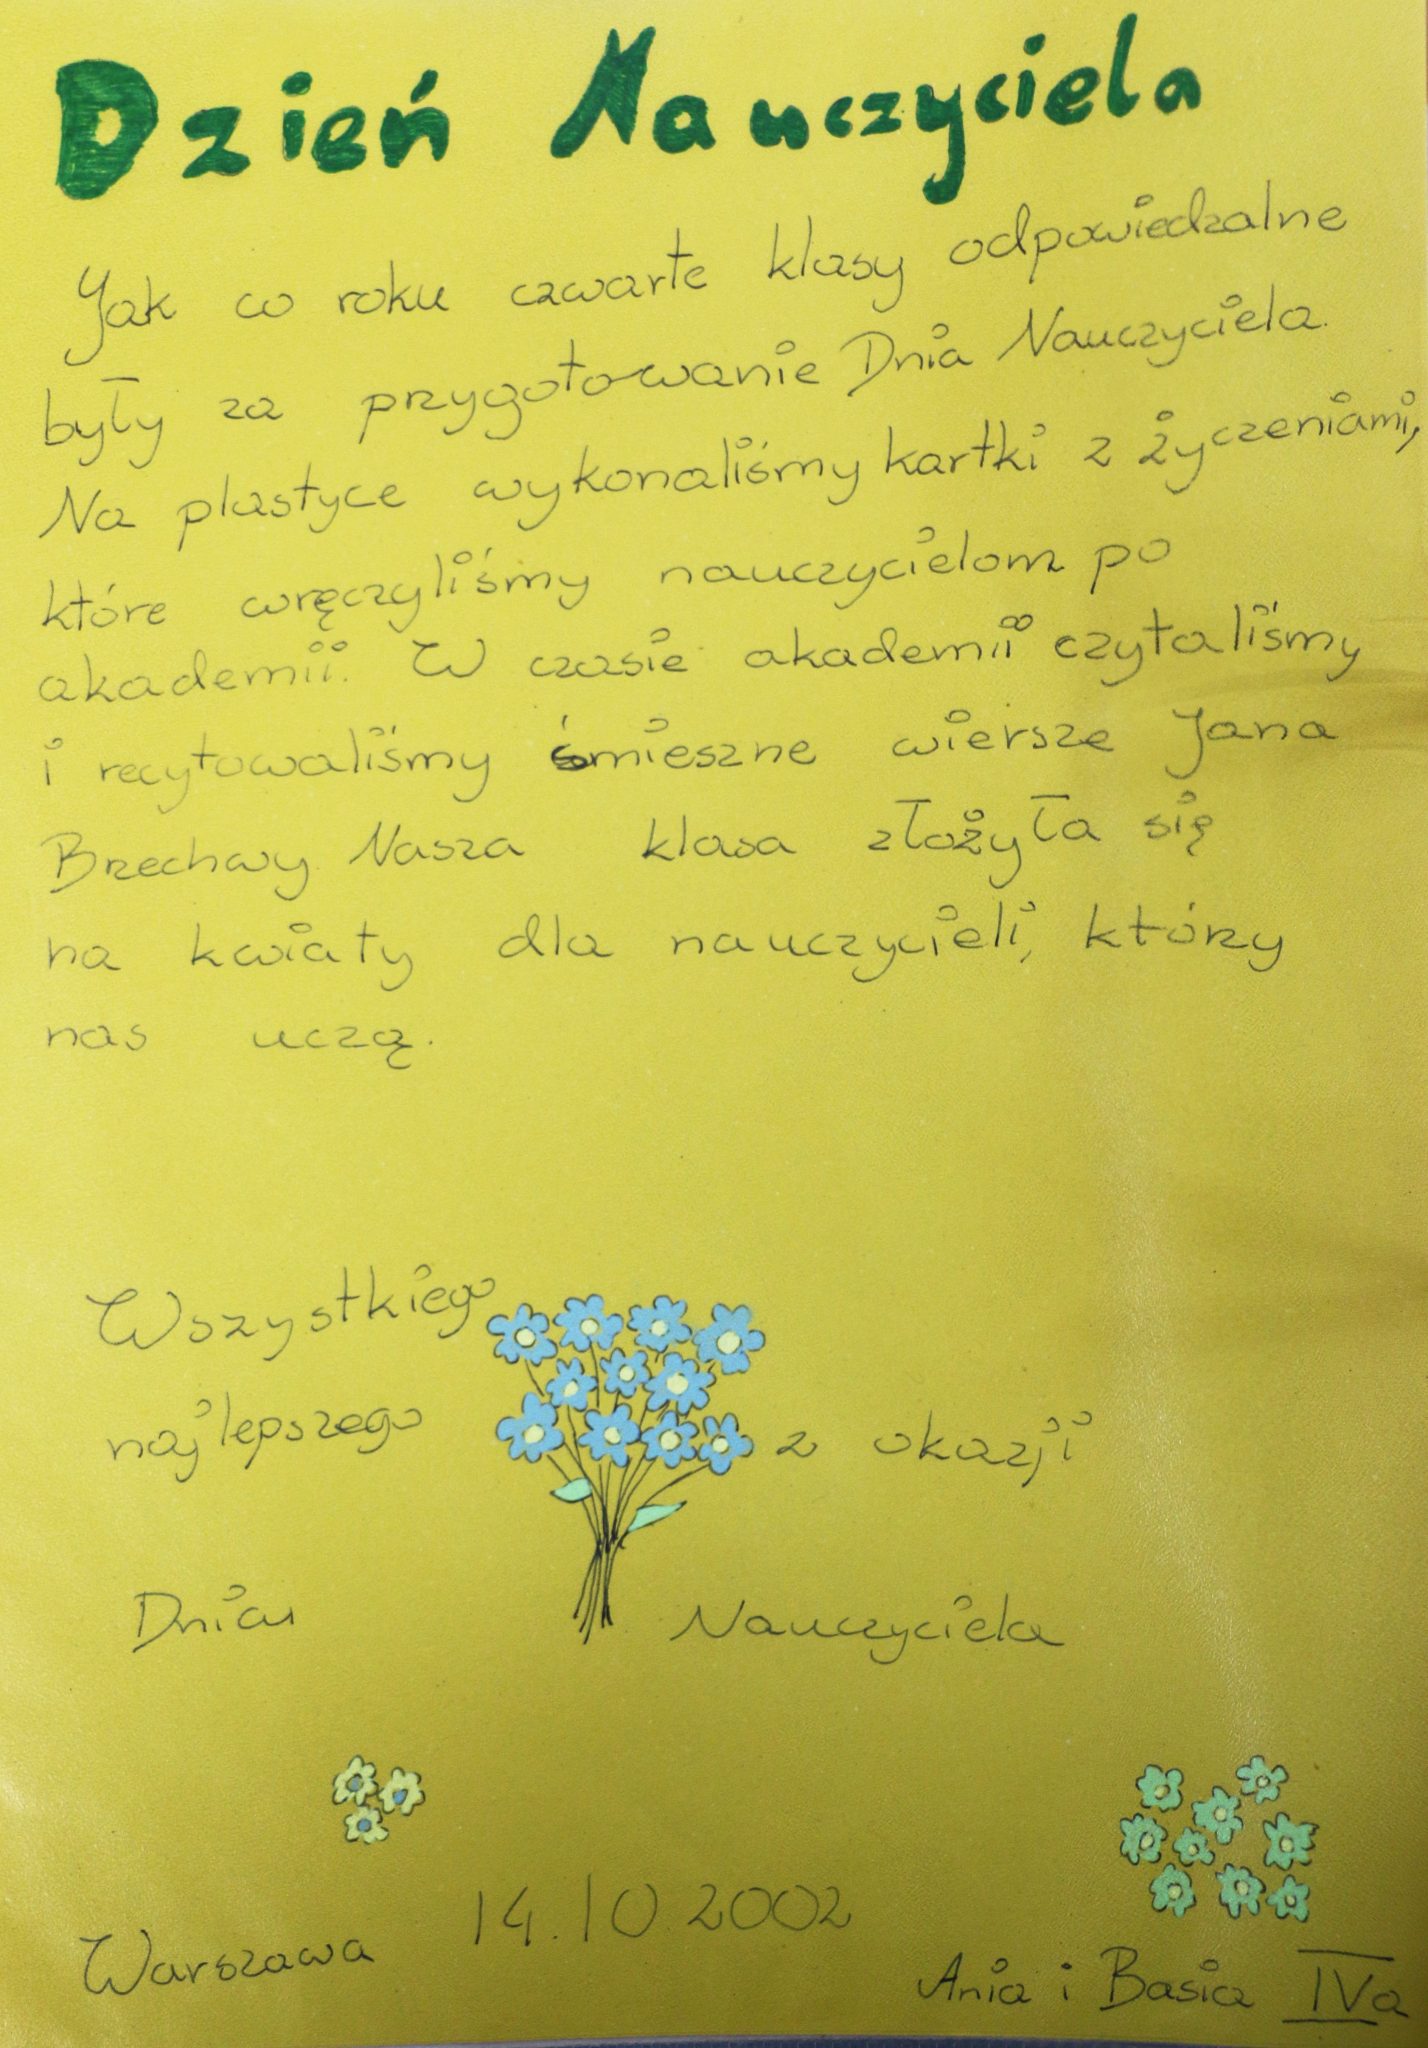 Dzień Nauczyciela
Jak co roku czwarte klasy odpowiedzalne
były za przygotowanie Dnia Nauczyciela.
Na plastyce wykonaliśmy kartki z życzeniami,
które wręczyliśmy nauczycielom po
akademii. W czasie akademii czytaliśmy
i recytowaliśmy śmieszne wiersze Jana
Brzechwy. Nasza klasa złożyła się
na kwiaty dla nauczycieli, którzy
nas uczą.
Wszystkiego
najlepszego z okazji
Dnia Nauczyciela
Warszawa 14.10.2002
Ania i Basia IVa